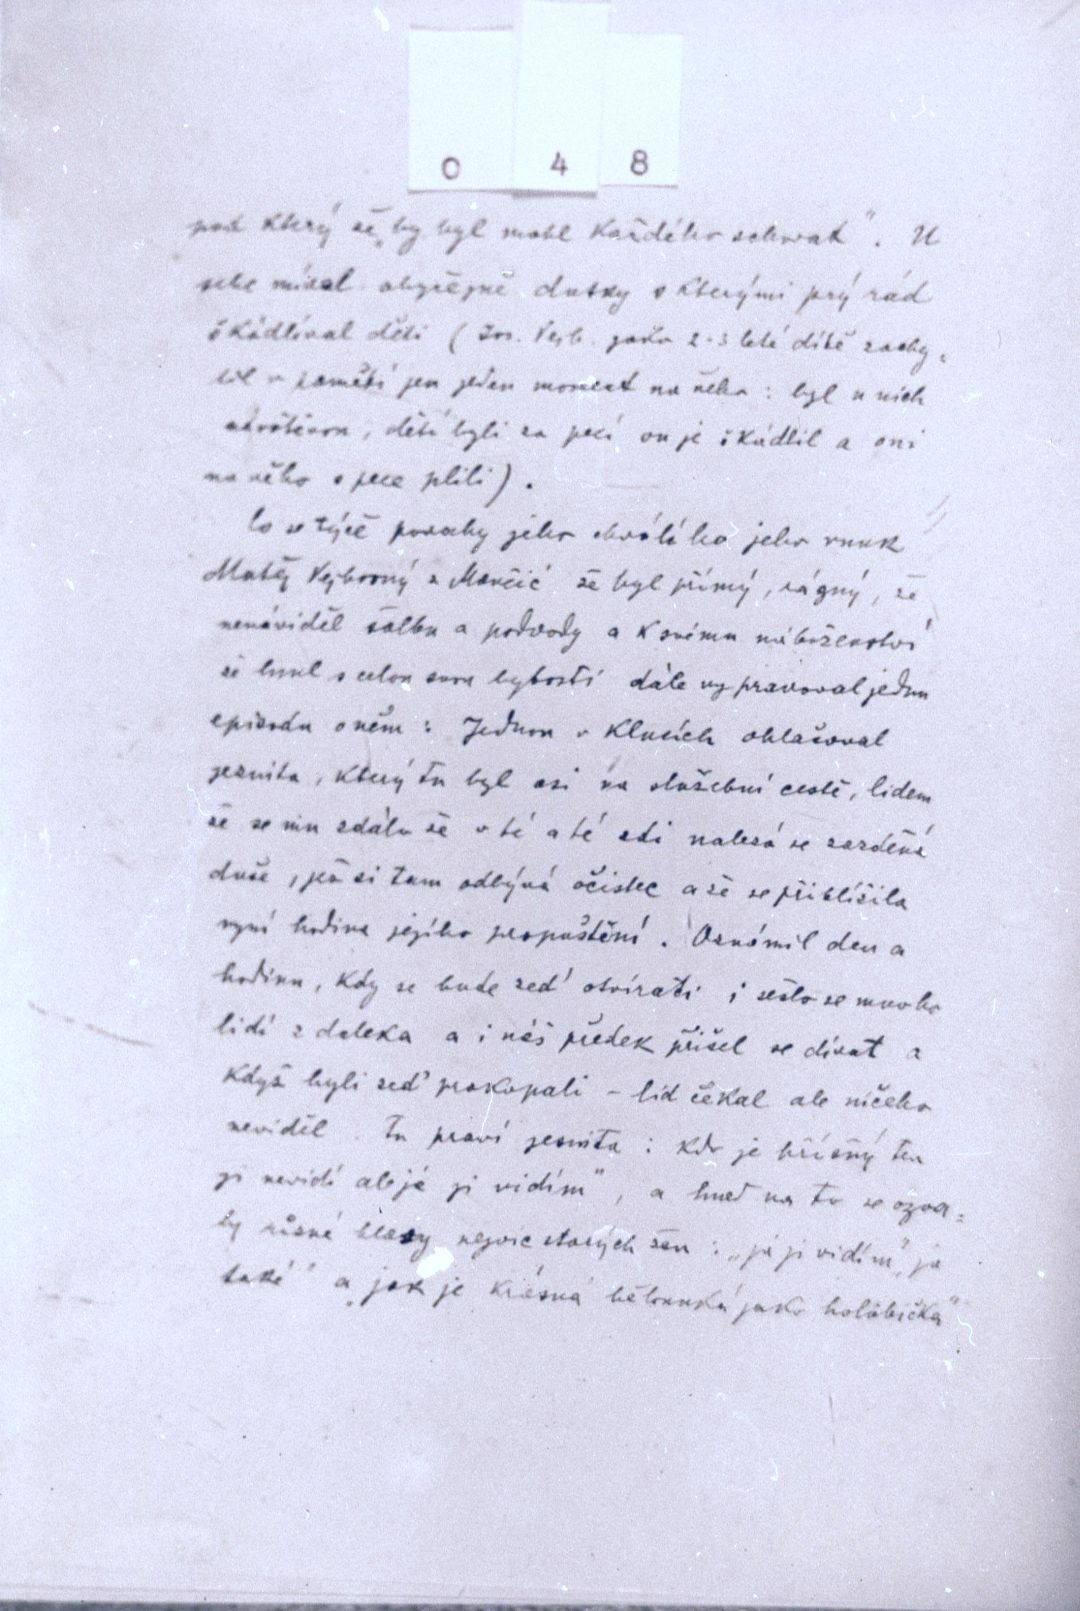 0 4 8
který že „by byl mohl každého schovat“. U
sebe míval obyčejně dutky s kterými prý rád
škádlíval děti (Jos. Vejb. jako 2-3 leté dítě zachy-
til v paměti jen jeden moment na něho: byl u nich
návštěvou, děti byli za pecí on je škádlil a oni
na něho s pece plili).
Co se týče povahy jeho chválí ho jeho vnuk
Matěj Vejborný z že byl přímý, rázný, že
nenáviděl šalbu a podvody a k svému náboženství
že lnul s celou svou bytostí dále vypravoval jednu
episodu o něm: Jednou v Klucích ohlašoval
jesuita, který tu byl asi na služební cestě, lidem
že se mu zdálo že v té a té zdi nalezá se zazděná
duše, jež si tam odbývá očistec a že se přiblížila
nyní hodina jejího propuštění. Oznámil den a
hodinu, kdy se bude zeď otvírati i sešlo se mnoho
lidí z daleka a i náš předek přišel se dívat a
když byli zeď prokopali – lid čekal ale ničeho
neviděl. Tu praví jesuita: kdo je hříšný ten
ji nevidí ale já ji vidím“, a hned na to se ozva-
ly různé hlasy nejvíc starých žen: „já ji vidím“, „já
také“ a „jak je krásná bělounká jako holubička“